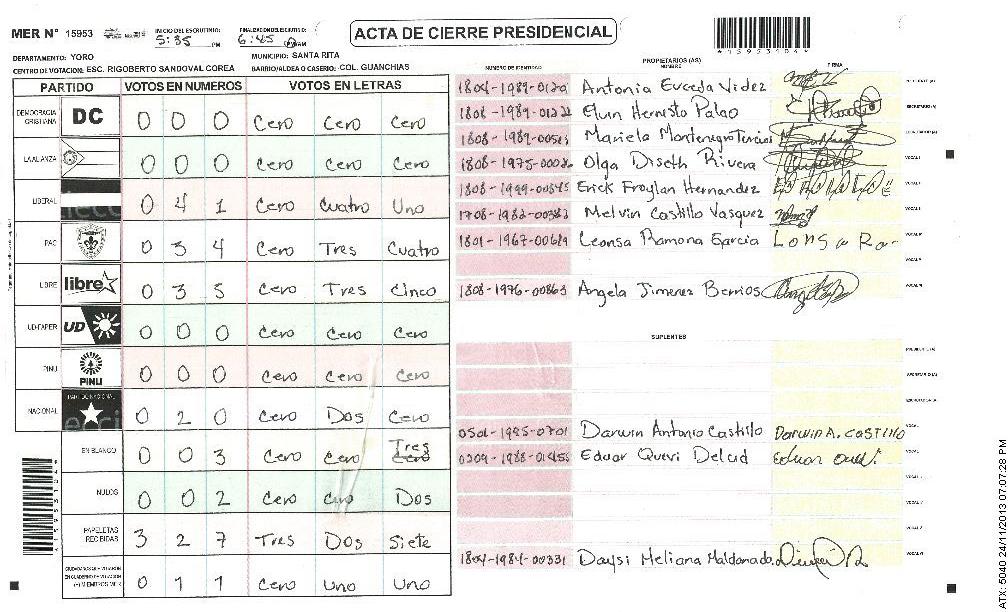 MER Nº 15953 INICIO DEL ESCRUTINIO: 5:35 PM FINALIZACION ESCRUTINIO: 6:45 AM
ACTA DE CIERRE PRESIDENCIAL
DEPARTAMENTO: YORO MUNICIPIO: SANTA RITA
CENTRO DE VOTACION: ESC. RIGOBERTO SANDOVAL COREA BARRIO/ALDEA O CASERIO: COL. GUANCHIAS
PARTIDO VOTOS EN NUMEROS VOTOS EN LETRAS
DEMOCRACIA CRISTIANA DC 0 0 0 Cero Cero Cero
LA ALIANZA 0 0 0 Cero Cero Cero
LIBERAL 0 4 1 Cero Cuatro Uno
PAC 0 3 4 Cero Tres Cuatro
LIBRE libre 0 3 5 Cero Tres Cinco
UD-FAPER UD 0 0 0 Cero Cero Cero
PINU PINU 0 0 0 Cero Cero Cero
NACIONAL PARTIDO NACIONAL 0 2 0 Cero Dos Cero
EN BLANCO 0 0 3 Cero Cero Tres Cero
NULOS 0 0 2 Cero Cero Dos
PAPELETAS RECIBIDAS 3 2 7 Tres Dos Siete
CIUDADANOS QUE VOTARON EN CUADERNO DE VOTACION (+) MIEMBROS MER 0 1 1 Cero Uno Uno
PROPIETARIOS (AS)
NUMERO DE IDENTIDAD NOMBRE FIRMA
Antonia Euceda Videz
Elvin Hernisto Palao SECRETARIO (A)
Mariela Montenegro
1808-1975-0002 Olga Diseth Rivera VOCAL I
1808-1999-00845 Erick Froylan Hernandez
1708-1982-00383 Melvin Castillo Vasquez
1801-1967-00619 Leonsa Ramona Garcia Lonsa Ra-
1808-1976-00863 Angela Jimenez Berrios
SUPLENTES
PRESIDENTE (A)
SECRETARIO (A)
0501-1985-0701 Darwin Antonio Castillo Darwin A. Castillo
0209-1988-01455 Eduar Quevi Delcid
1804-1984-00331 Daysi Meliana Maldonado
ATX: 5040 24/11/2013 07:07:28 PM